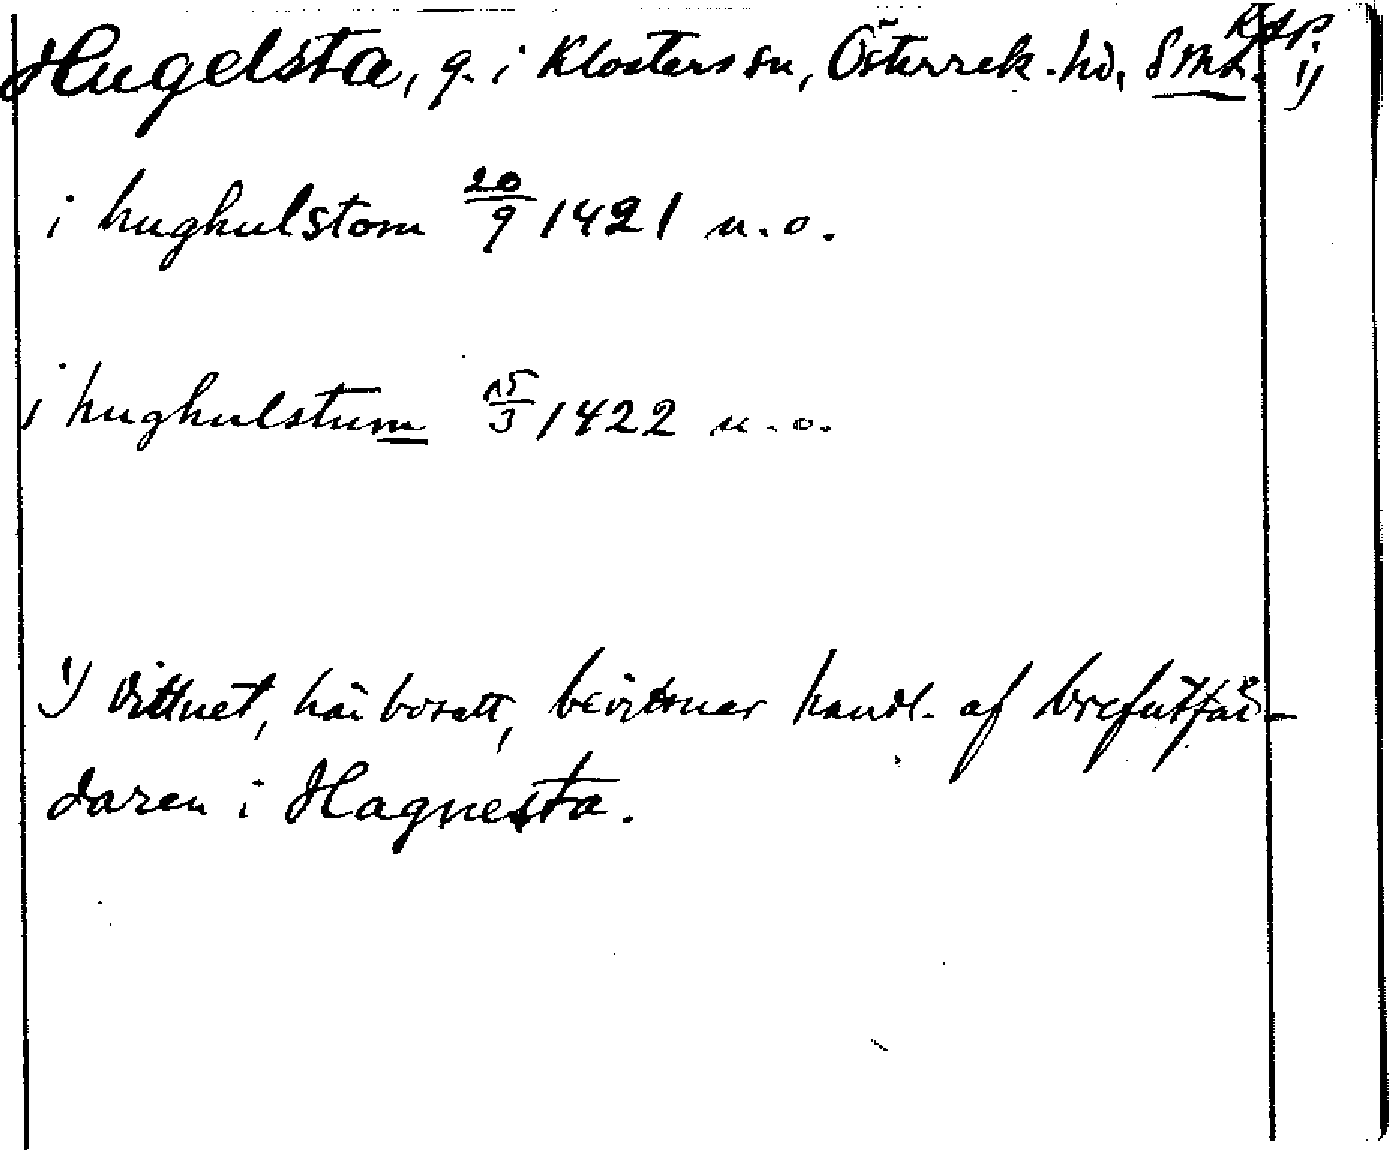 Hugelsta, g. i Klosters sn, Österrek. hd, Sml. 1)
i hughulstom 20/9 1421 u.o.
i hughulstum 15/3 1422 u.o.
1) Vittnet, här bosatt, bevittnar handl. af brefutfär-
daren i Hagnesta.